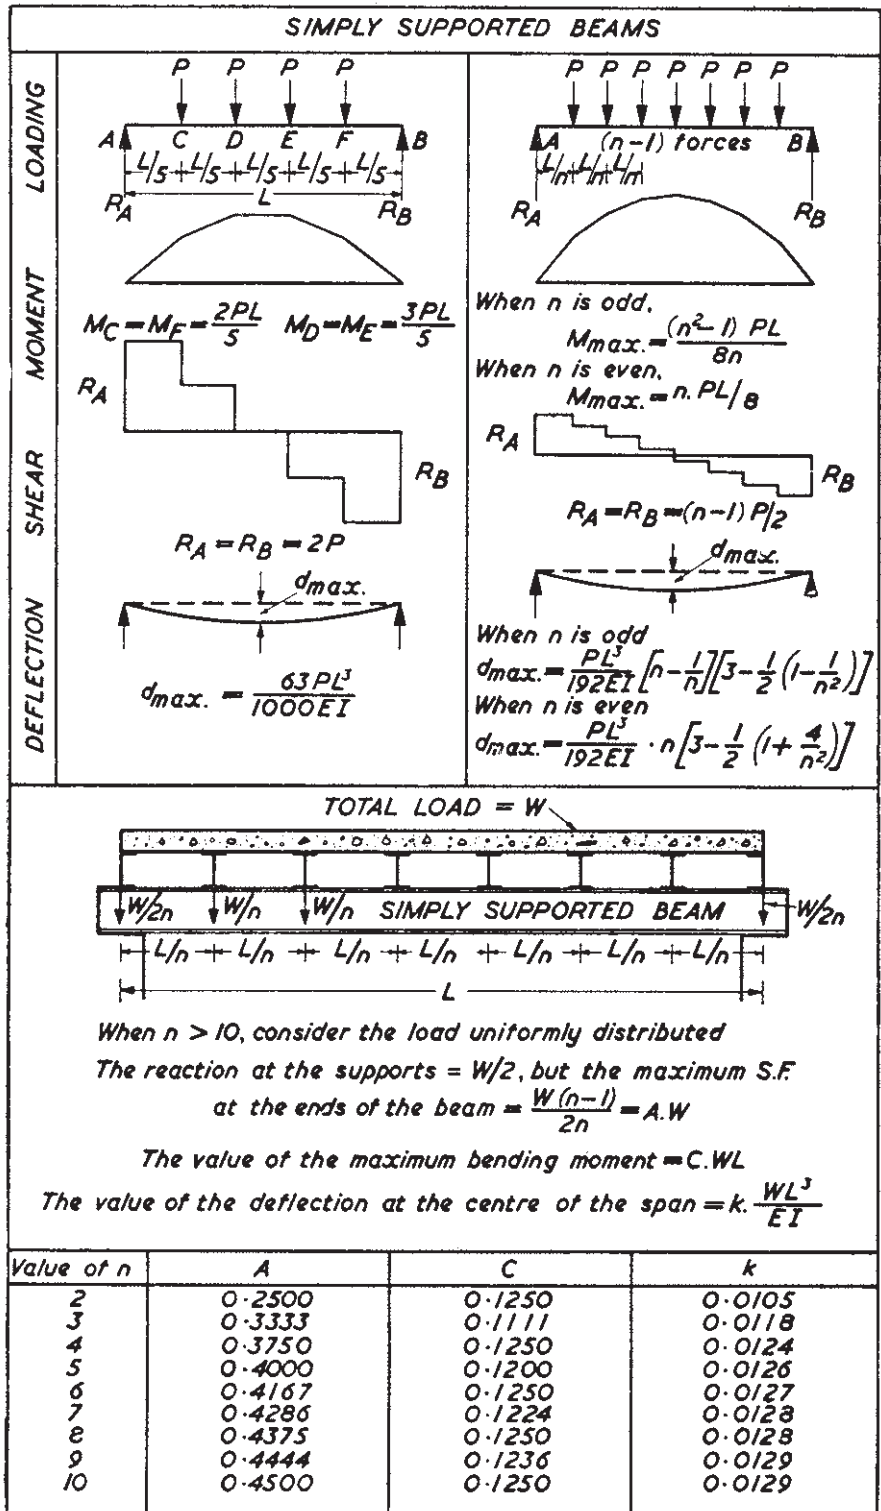 SIMPLY SUPPORTED BEAMS
LOADING
P P P P
A C D E F B
L/5 L/5 L/5 L/5 L/5
L
R_A R_B
P P P P P P P
A (n-1) forces B
L/n L/n L/n
R_A R_B
MOMENT
M_C = M_F = 2PL/5 M_D = M_E = 3PL/5
When n is odd,
M_max. = (n²-1) PL/8n
When n is even,
M_max. = n. PL/8
SHEAR
R_A R_B
R_A = R_B = 2P
R_A R_B
R_A = R_B = (n-1) P/2
DEFLECTION
d_max.
d_max. = 63PL³/1000EI
d_max.
When n is odd
d_max. = PL³/192EI [n - 1/n][3 - 1/2 (1 - 1/n²)]
When n is even
d_max. = PL³/192EI · n [3 - 1/2 (1 + 4/n²)]
TOTAL LOAD = W
W/2n W/n W/n SIMPLY SUPPORTED BEAM W/2n
L/n L/n L/n L/n L/n L/n L/n
L
When n > 10, consider the load uniformly distributed
The reaction at the supports = W/2, but the maximum S.F.
at the ends of the beam = W(n-1)/2n = A.W
The value of the maximum bending moment = C.WL
The value of the deflection at the centre of the span = k. WL³/EI
Value of n A C k
2 0·2500 0·1250 0·0105
3 0·3333 0·1111 0·0118
4 0·3750 0·1250 0·0124
5 0·4000 0·1200 0·0126
6 0·4167 0·1250 0·0127
7 0·4286 0·1224 0·0128
8 0·4375 0·1250 0·0128
9 0·4444 0·1236 0·0129
10 0·4500 0·1250 0·0129